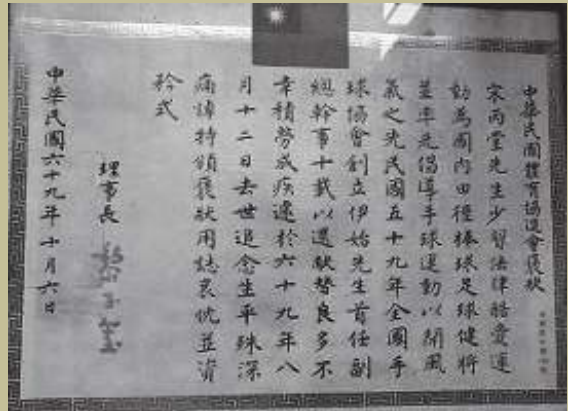 中華民國體育協進會褒狀
宋丙堂先生少習法律酷愛運
動為國內田徑棒球足球健將
並率先倡導手球運動以開風
氣之先民國五十九年全國手
球協會創立伊始先生首任副
總幹事十載以還獻替良多不
幸積勞成疾遽於六十九年八
月十二日去世追念生平殊深
痛悼特頒褒狀用誌哀忱並資
矜式
理事長
中華民國六十九年十月六日